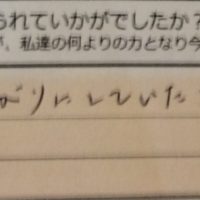 られていかがでしたか?
が、私達の何よりの力となり今
がりにしていた